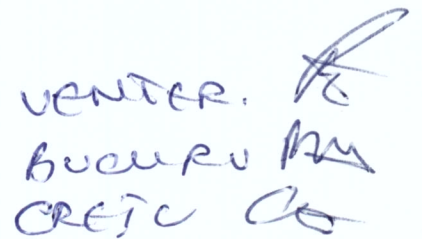 VENTER.
BUCURU
CREȚU